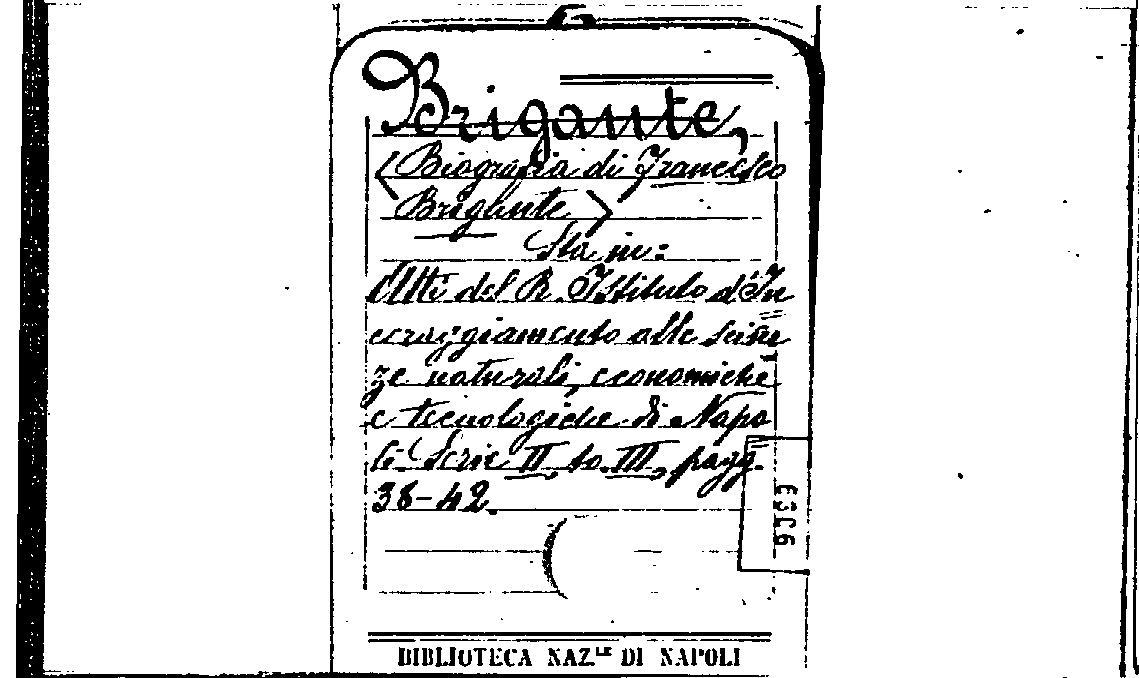 Brigante,
<Biografia di Francesco
Brigante>
Sta in:
Atti del R. Istituto d'In
coraggiamento alle scien
ze naturali, economiche
e tecnologiche di Napo
li Serie II to. III, pagg.
38-42.
BIBLIOTECA NAZ.LE DI NAPOLI